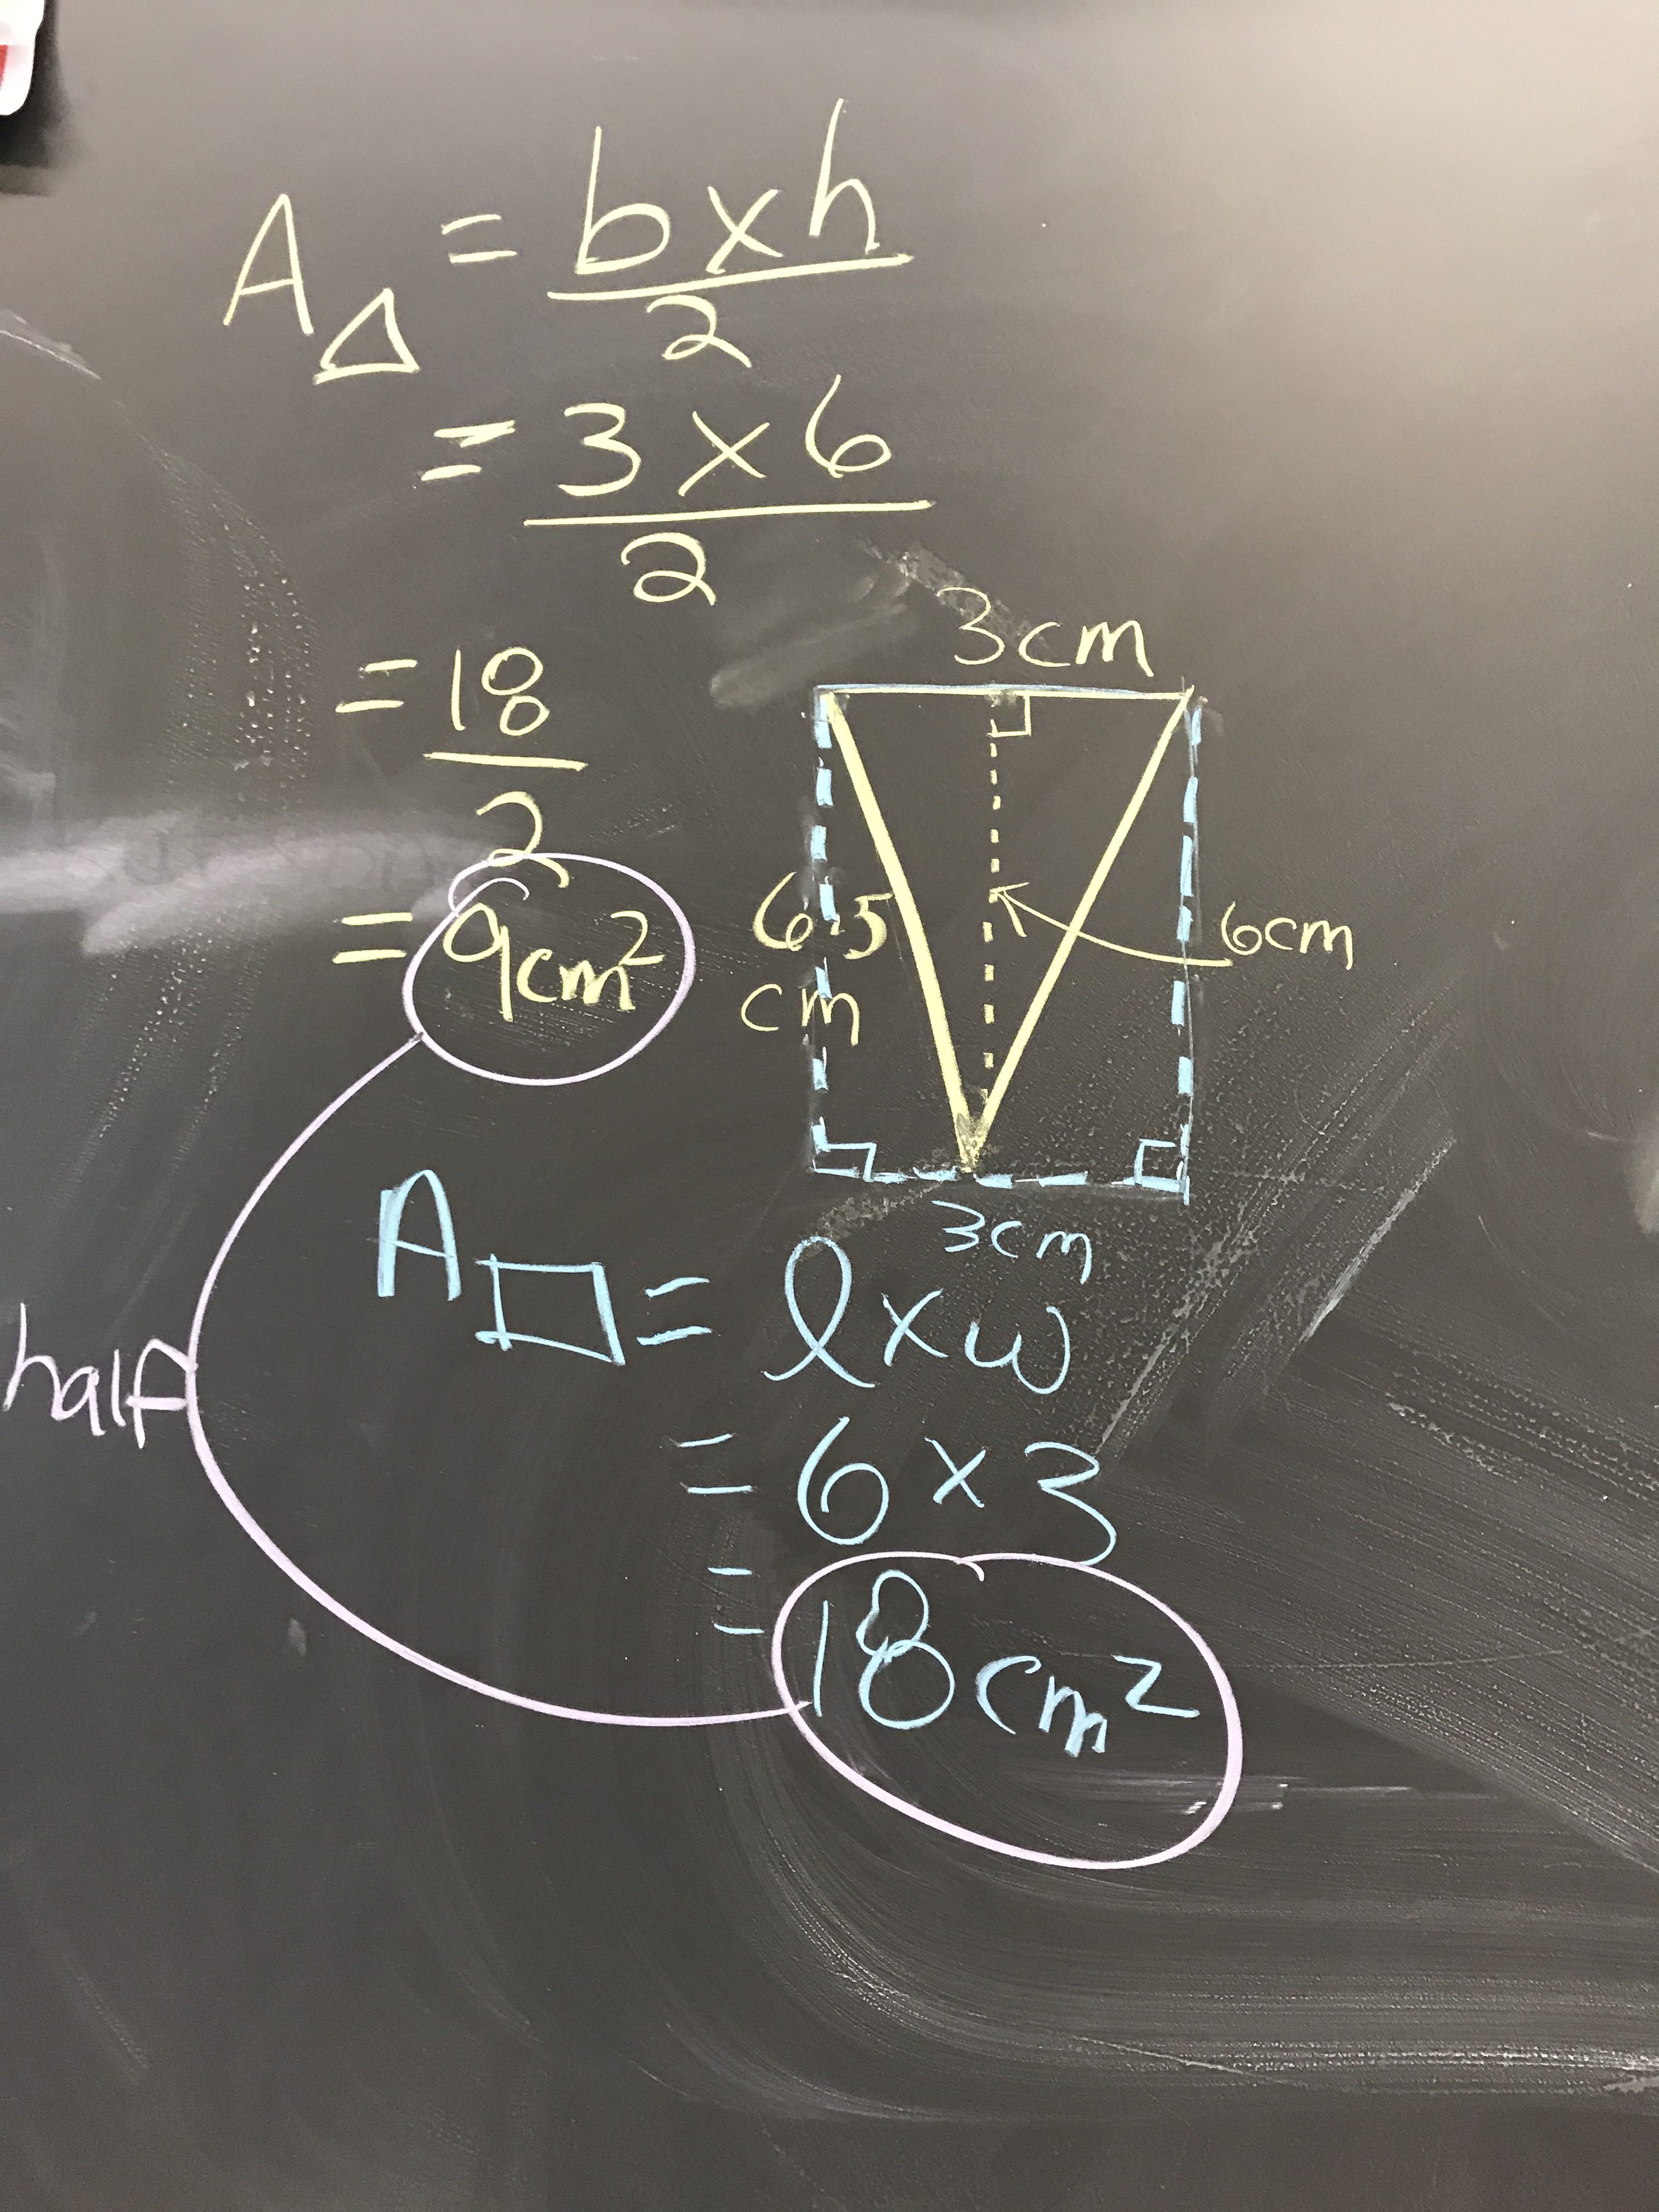 A△ = b x h
2
= 3 x 6
2
= 18
2
= 9cm²
3cm
6.5
cm
6cm
3cm
A□ = l x w
= 6 x 3
= 18cm²
half